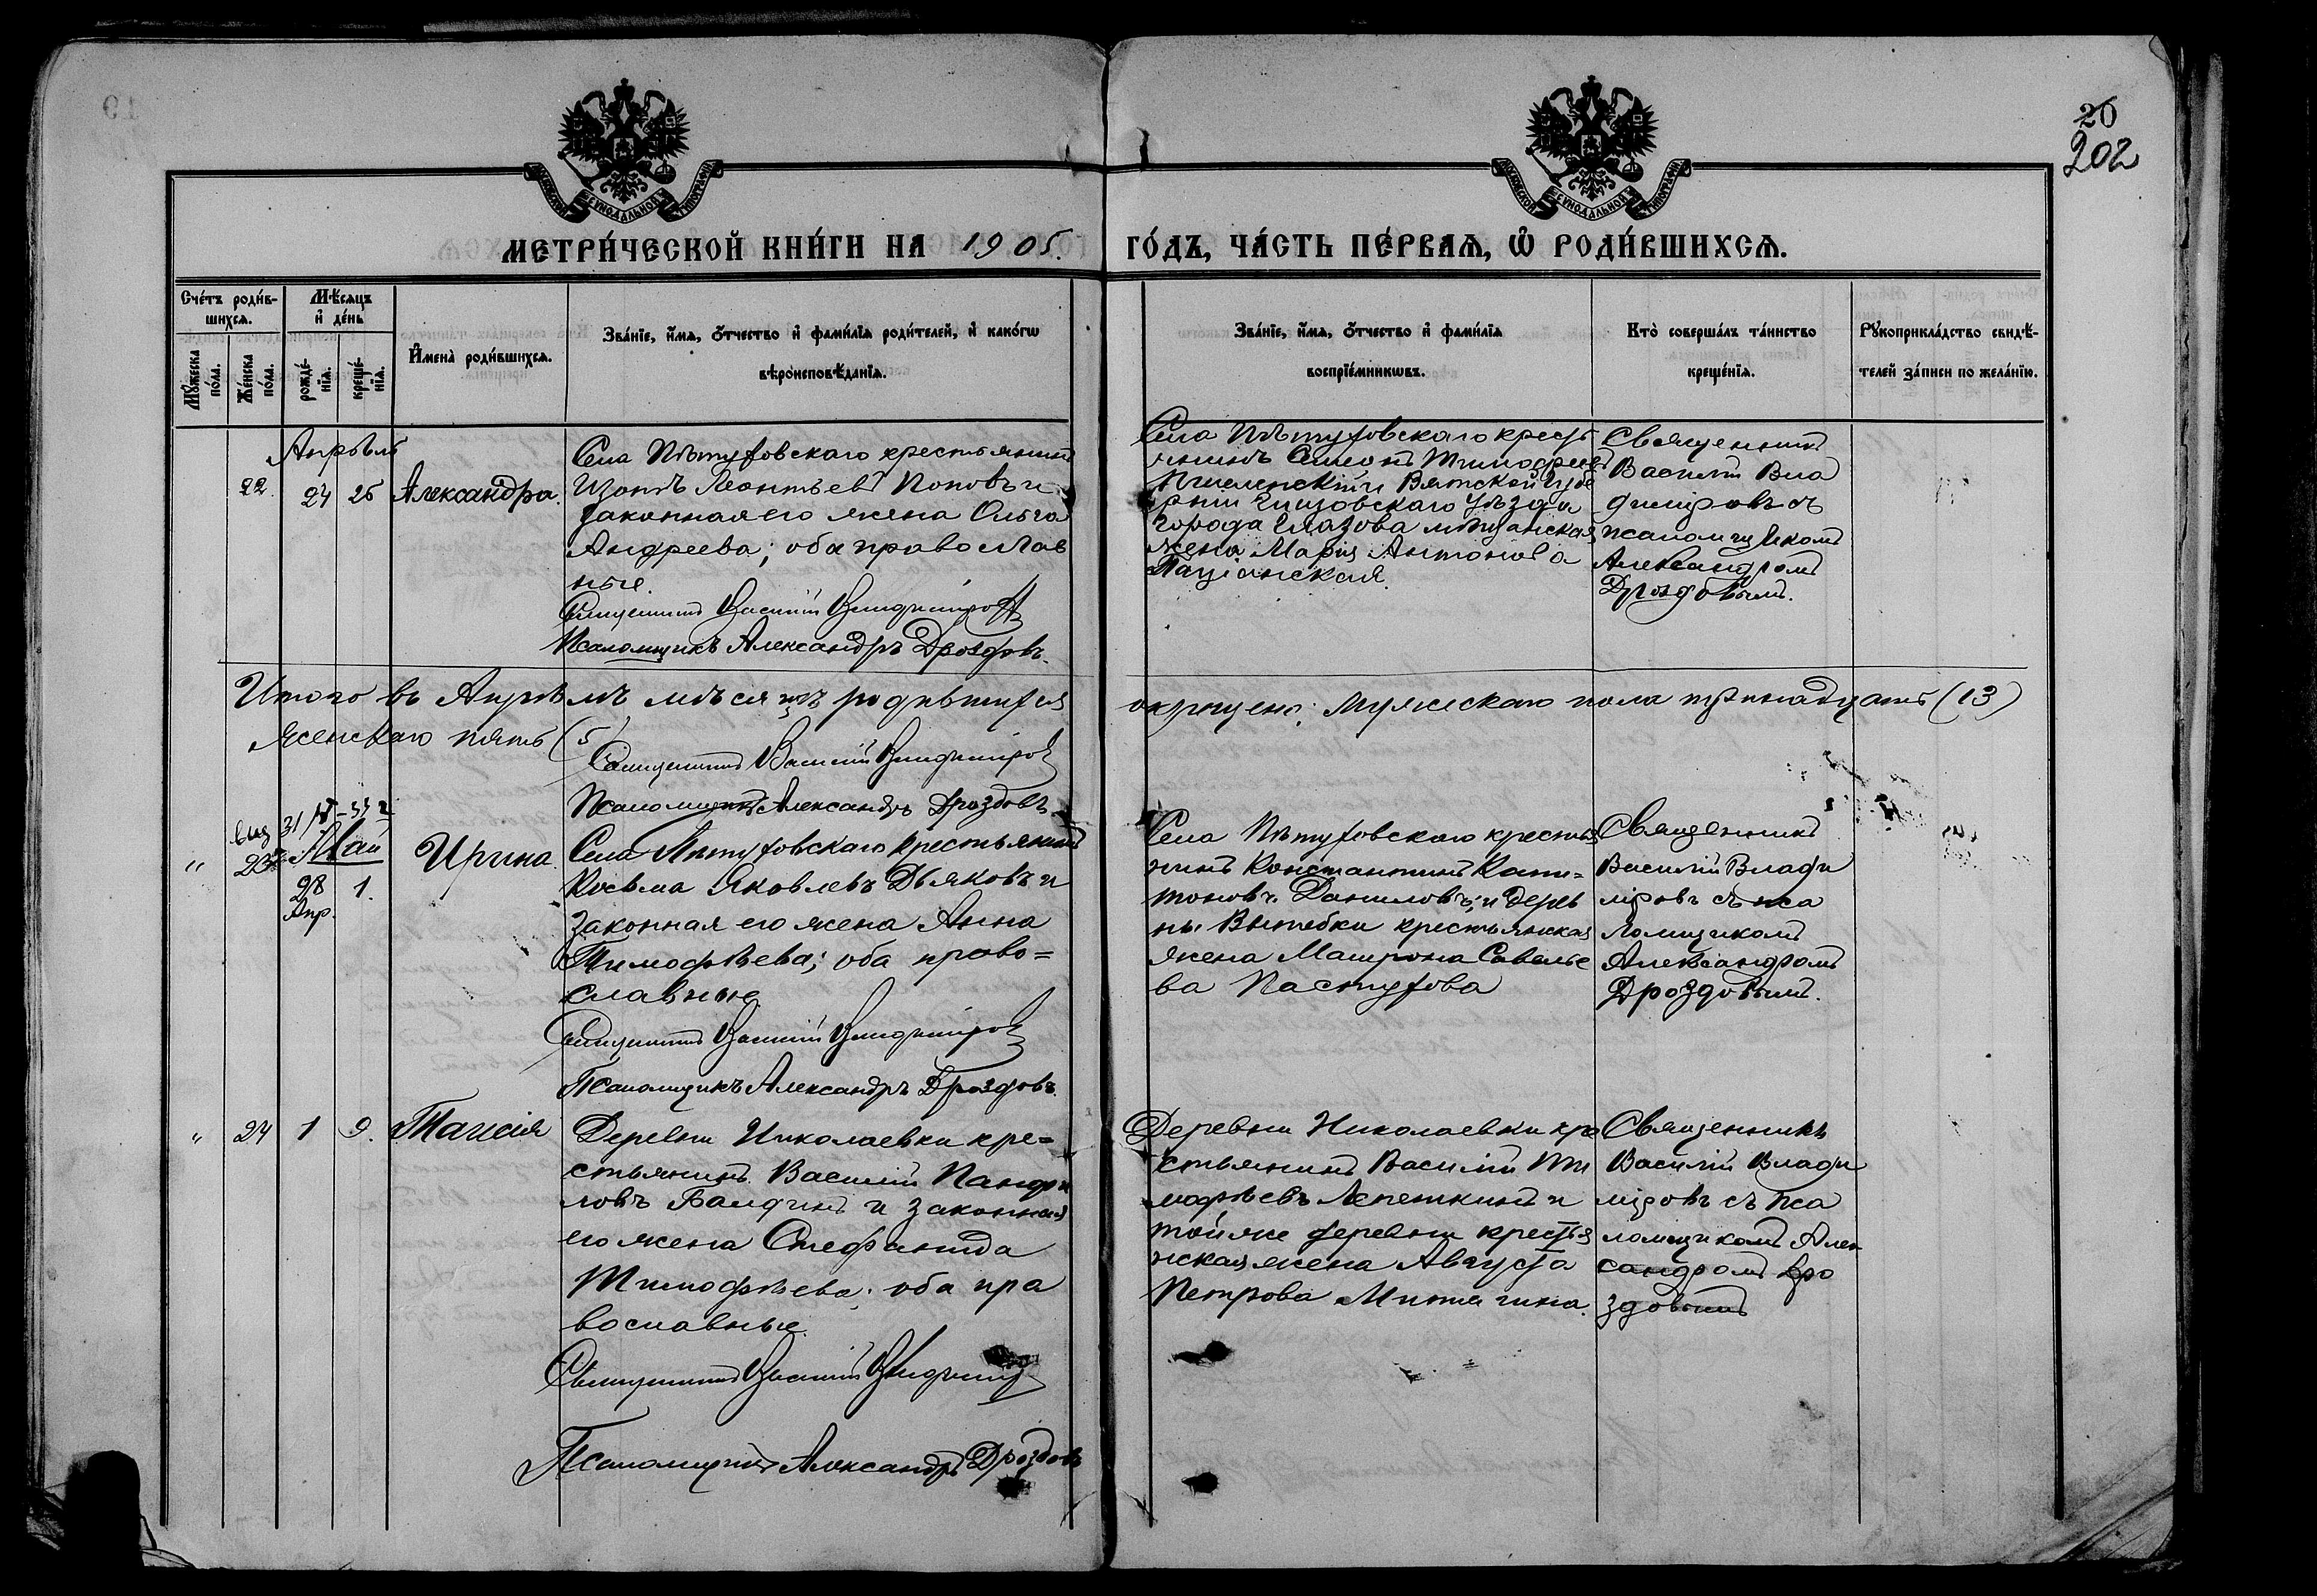 20
202
МЕТРИ́ЧЕСКОЙ КНИ́ГИ НА 1905.
ГО́ДЪ, ЧА́СТЬ ПЕ́РВАѦ, Ѡ҆ РОДИ́ВШИХСѦ.
МОСКОВСКОЙ СѴНОДАЛЬНОЙ ТИПОГРАФІИ
МОСКОВСКОЙ СѴНОДАЛЬНОЙ ТИПОГРАФІИ
Сче́тъ роди́в-
шихсѧ.
Мꙋ́жеска по́ла.
Же́нска по́ла.
Мѣ́сѧцъ
и҆ де́нь
рожде́-
нїѧ.
креще́-
нїѧ.
И҆мена̀ роди́вшихсѧ.
Зва́нїе, и҆́мѧ, ѻ҆́тчество и҆ фами́лїѧ роди́телей, и҆ како́гѡ
вѣроисповѣ́данїѧ.
Зва́нїе, и҆́мѧ, ѻ҆́тчество и҆ фами́лїѧ
воспрїе́мникѡвъ.
Кто̀ соверша́лъ та́инство
креще́нїѧ.
Рꙋкоприкла́дство свидѣ́-
телей за́писи по жела́нїю.
Апрѣль
22. 24 25 Александра.
Села Пѣтуховскаго крестьянинъ
Изотъ Леонтьевъ Поповъ и
законная его жена Ольга
Андреева; оба православ
ные.
Священникъ Василій Владиміровъ
Псаломщикъ Александръ Дроздовъ.
Села Пѣтуховскаго кресть
янинъ Симонъ Тимофеев
Вятской губе
рніи Глазовскаго уѣзда
города Глазова мѣщанская
жена Марія Антонова
Священникъ
Василій Вла
диміровъ съ
псаломщикомъ
Александромъ
Дроздовымъ.
Итого въ Апрѣлѣ мѣсяцѣ родившихся
окрещено: мужескаго пола тринадцать (13)
женскаго пять (5)
Священникъ Василій Владиміровъ
Псаломщикъ Александръ Дроздовъ
выд 31/
Май
" 23 28 1. Ирина.
Апр.
Села Пѣтуховскаго крестьянинъ
Косьма Яковлевъ Дьяковъ и
законная его жена Анна
Тимофѣева; оба право=
славные
Священникъ Василій Владиміровъ
Псаломщикъ Александръ Дроздовъ.
Села Пѣтуховскаго крестья
нинъ Константинъ Капи=
тоновъ Даниловъ; и дерев
ни Вытебки крестьянская
жена Матрона Савелье
ва Пастухова
Священникъ
Василій Влади
міровъ съ пса
ломщикомъ
Александромъ
Дроздовымъ.
" 24 1 9. Таисія
Деревни Николаевки кре=
стьянинъ Василій Панфи
ловъ Балдинъ и законная
его жена Стефанида
Тимофѣева; оба пра
вославные.
Священникъ Василій Владиміровъ
Псаломщикъ Александръ Дроздовъ
Деревни Николаевки кре
стьянинъ Василій Ти
мофѣевъ Лепешкинъ и
той же деревни крестья
нская жена Августа
Петрова Митягина.
Священникъ
Василій Влади
міровъ съ пса
ломщикомъ Алек
сандромъ Дро
здовымъ